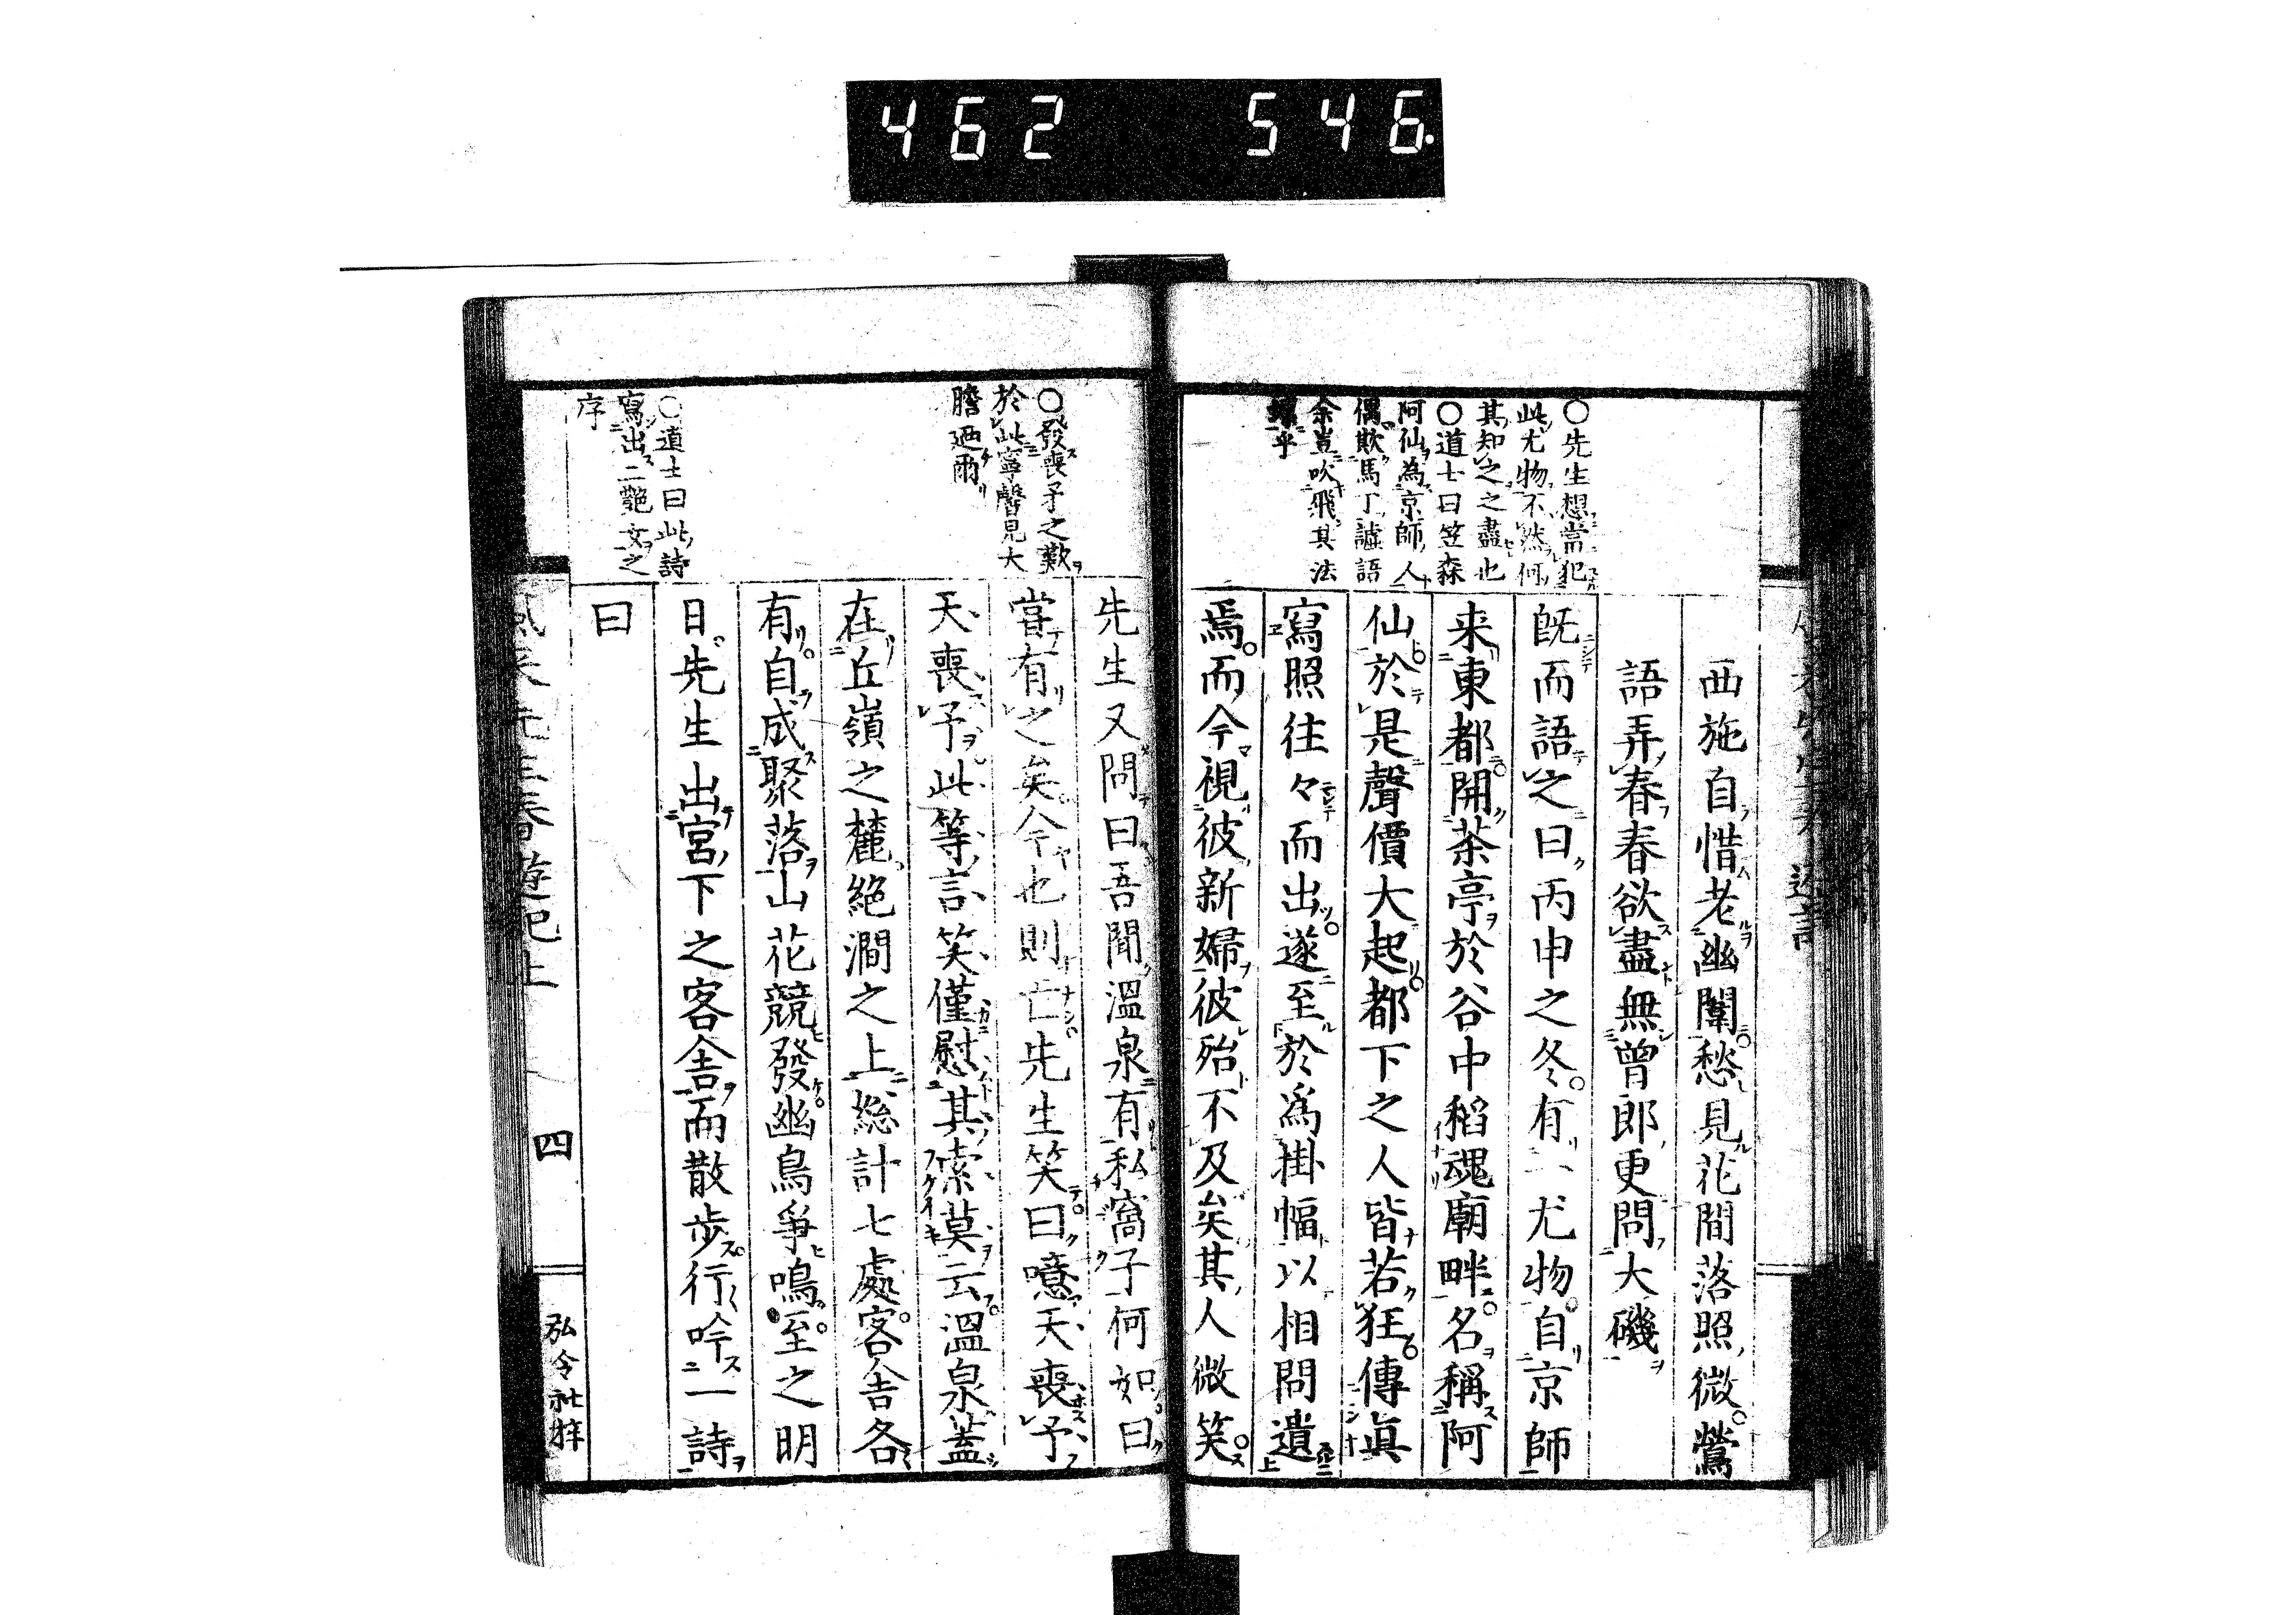 462 546.
○先生想當犯
此尤物不然何
其知之之盡也
○道士曰笠森
阿仙為京師人
偶欺馬丁謔語
余豈吹飛其法
螺乎
西施自惜老幽闈愁見花間落照微鶯
語弄春春欲盡無曾郎更問大磯
既而語之曰丙申之冬有一尤物自京師
来東都開茶亭於谷中稻魂廟畔名稱阿
仙於是聲價大起都下之人皆若狂傳眞
寫照往々而出遂至於爲掛幅以相問遺
焉而今視彼新婦彼殆不及矣其人微笑
○發喪予之歎
於此寧馨見大
膽迺爾
○道士曰此詩
寫出二艷文之
序
先生又問曰吾聞溫泉有私窩子何如曰
嘗有之矣今也則亡先生笑曰噫天喪予
天喪予此等言笑僅慰其索莫云溫泉蓋
在丘嶺之麓絕澗之上總計七處客舎各
有自成聚落山花競發幽鳥爭鳴至之明
日先生出宮下之客舎而散步行吟一詩
曰
四
弘令社梓